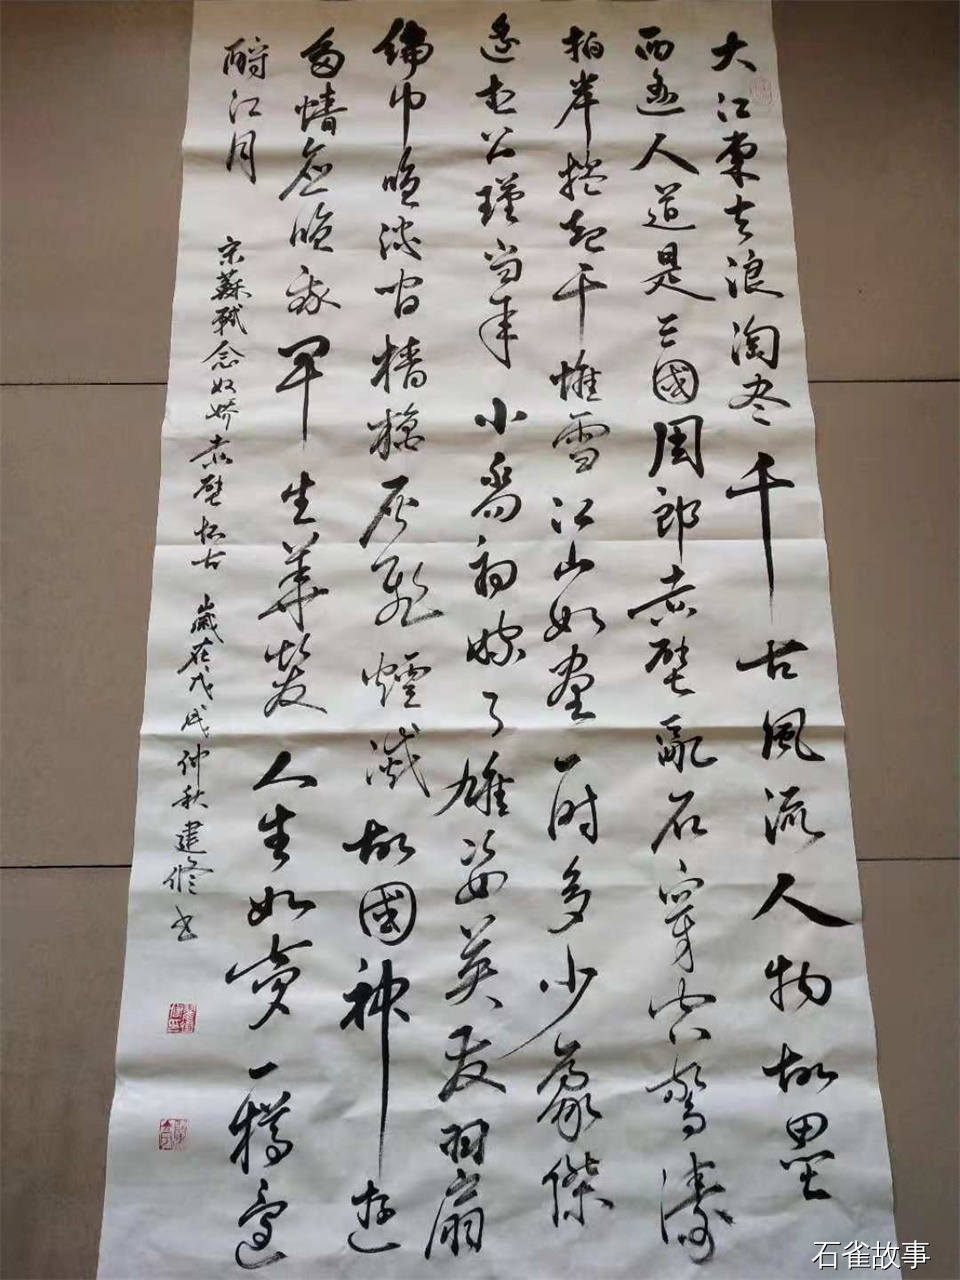 大江東去浪淘尽千古風流人物故壘
西邊人道是三國周郎赤壁亂石穿空驚濤
拍岸捲起千堆雪江山如畫一时多少豪傑
遥想公瑾当年小喬初嫁了雄姿英发羽扇
綸巾咲談间檣櫓灰飛煙滅故國神遊
多情應咲我早生華髮人生如夢一樽還
酹江月
宋蘇軾念奴嬌赤壁怀古 歲在戊戌仲秋建修书
石雀故事